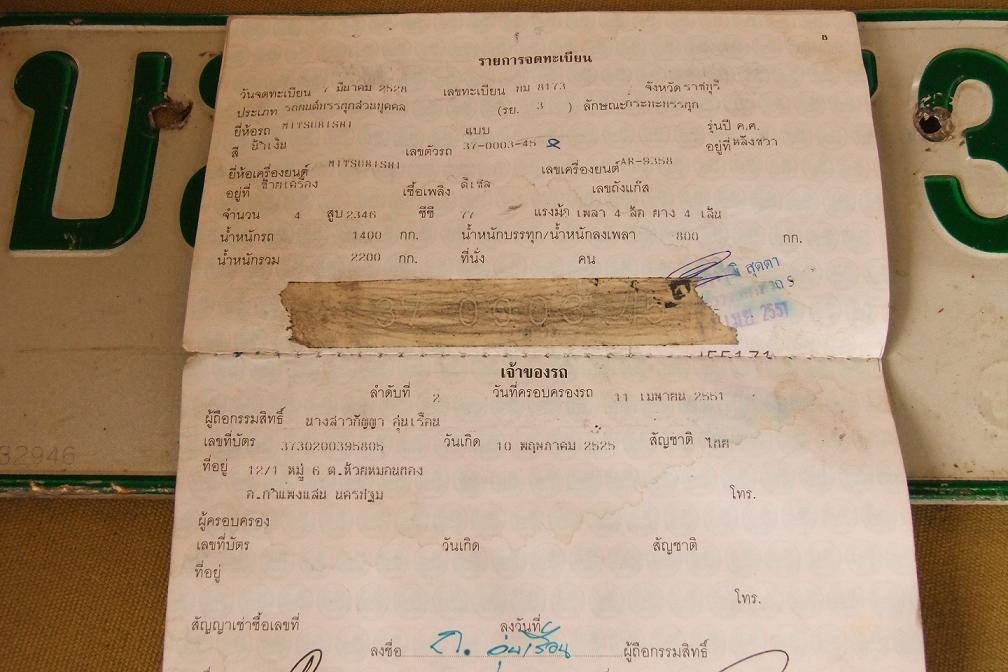 8
รายการจดทะเบียน
วันจดทะเบียน 7 มีนาคม 2528 เลขทะเบียน 8173 จังหวัด ราชบุรี
ประเภท รถยนต์บรรทุกส่วนบุคคล (รย. 3 ) ลักษณะ กระบะบรรทุก
ยี่ห้อรถ MITSUBISHI แบบ รุ่นปี ค.ศ.
สี ฟ้าเงิน เลขตัวรถ 37-0003-45 อยู่ที่ หลังขวา
ยี่ห้อเครื่องยนต์ MITSUBISHI เลขเครื่องยนต์ AR-9358
อยู่ที่ ซ้ายเครื่อง เชื้อเพลิง ดีเซล เลขถังแก๊ส
จำนวน 4 สูบ 2346 ซีซี 77 แรงม้า เพลา 4 ล้อ ยาง 4 เส้น
น้ำหนักรถ 1400 กก. น้ำหนักบรรทุก/น้ำหนักลงเพลา 800 กก.
น้ำหนักรวม 2200 กก. ที่นั่ง คน
สุดตา
2551
37 0003 45
เจ้าของรถ
ลำดับที่ 2 วันที่ครอบครองรถ 11 เมษายน 2551
ผู้ถือกรรมสิทธิ์ นางสาวกัญญา อุ่นเรือน
เลขที่บัตร 3730200395805 วันเกิด 10 พฤษภาคม 2525 สัญชาติ ไทย
ที่อยู่ 12/1 หมู่ 6 ต.ห้วยหมอนทอง
อ.กำแพงแสน นครปฐม โทร.
ผู้ครอบครอง
เลขที่บัตร วันเกิด สัญชาติ
ที่อยู่
โทร.
สัญญาเช่าซื้อเลขที่ ลงวันที่
ลงชื่อ ก. อุ่นเรือน ผู้ถือกรรมสิทธิ์
บ 3
32946